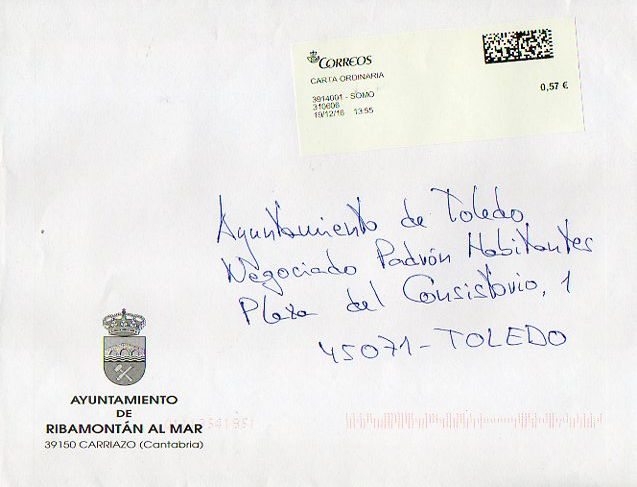 CORREOS
CARTA ORDINARIA
3914001 - SOMO
310606
19/12/16 13:55
0,57 €
Ayuntamiento de Toledo
Negociado Padrón Habitantes
Plaza del Consistorio, 1
45071-TOLEDO
AYUNTAMIENTO
DE
RIBAMONTÁN AL MAR
39150 CARRIAZO (Cantabria)